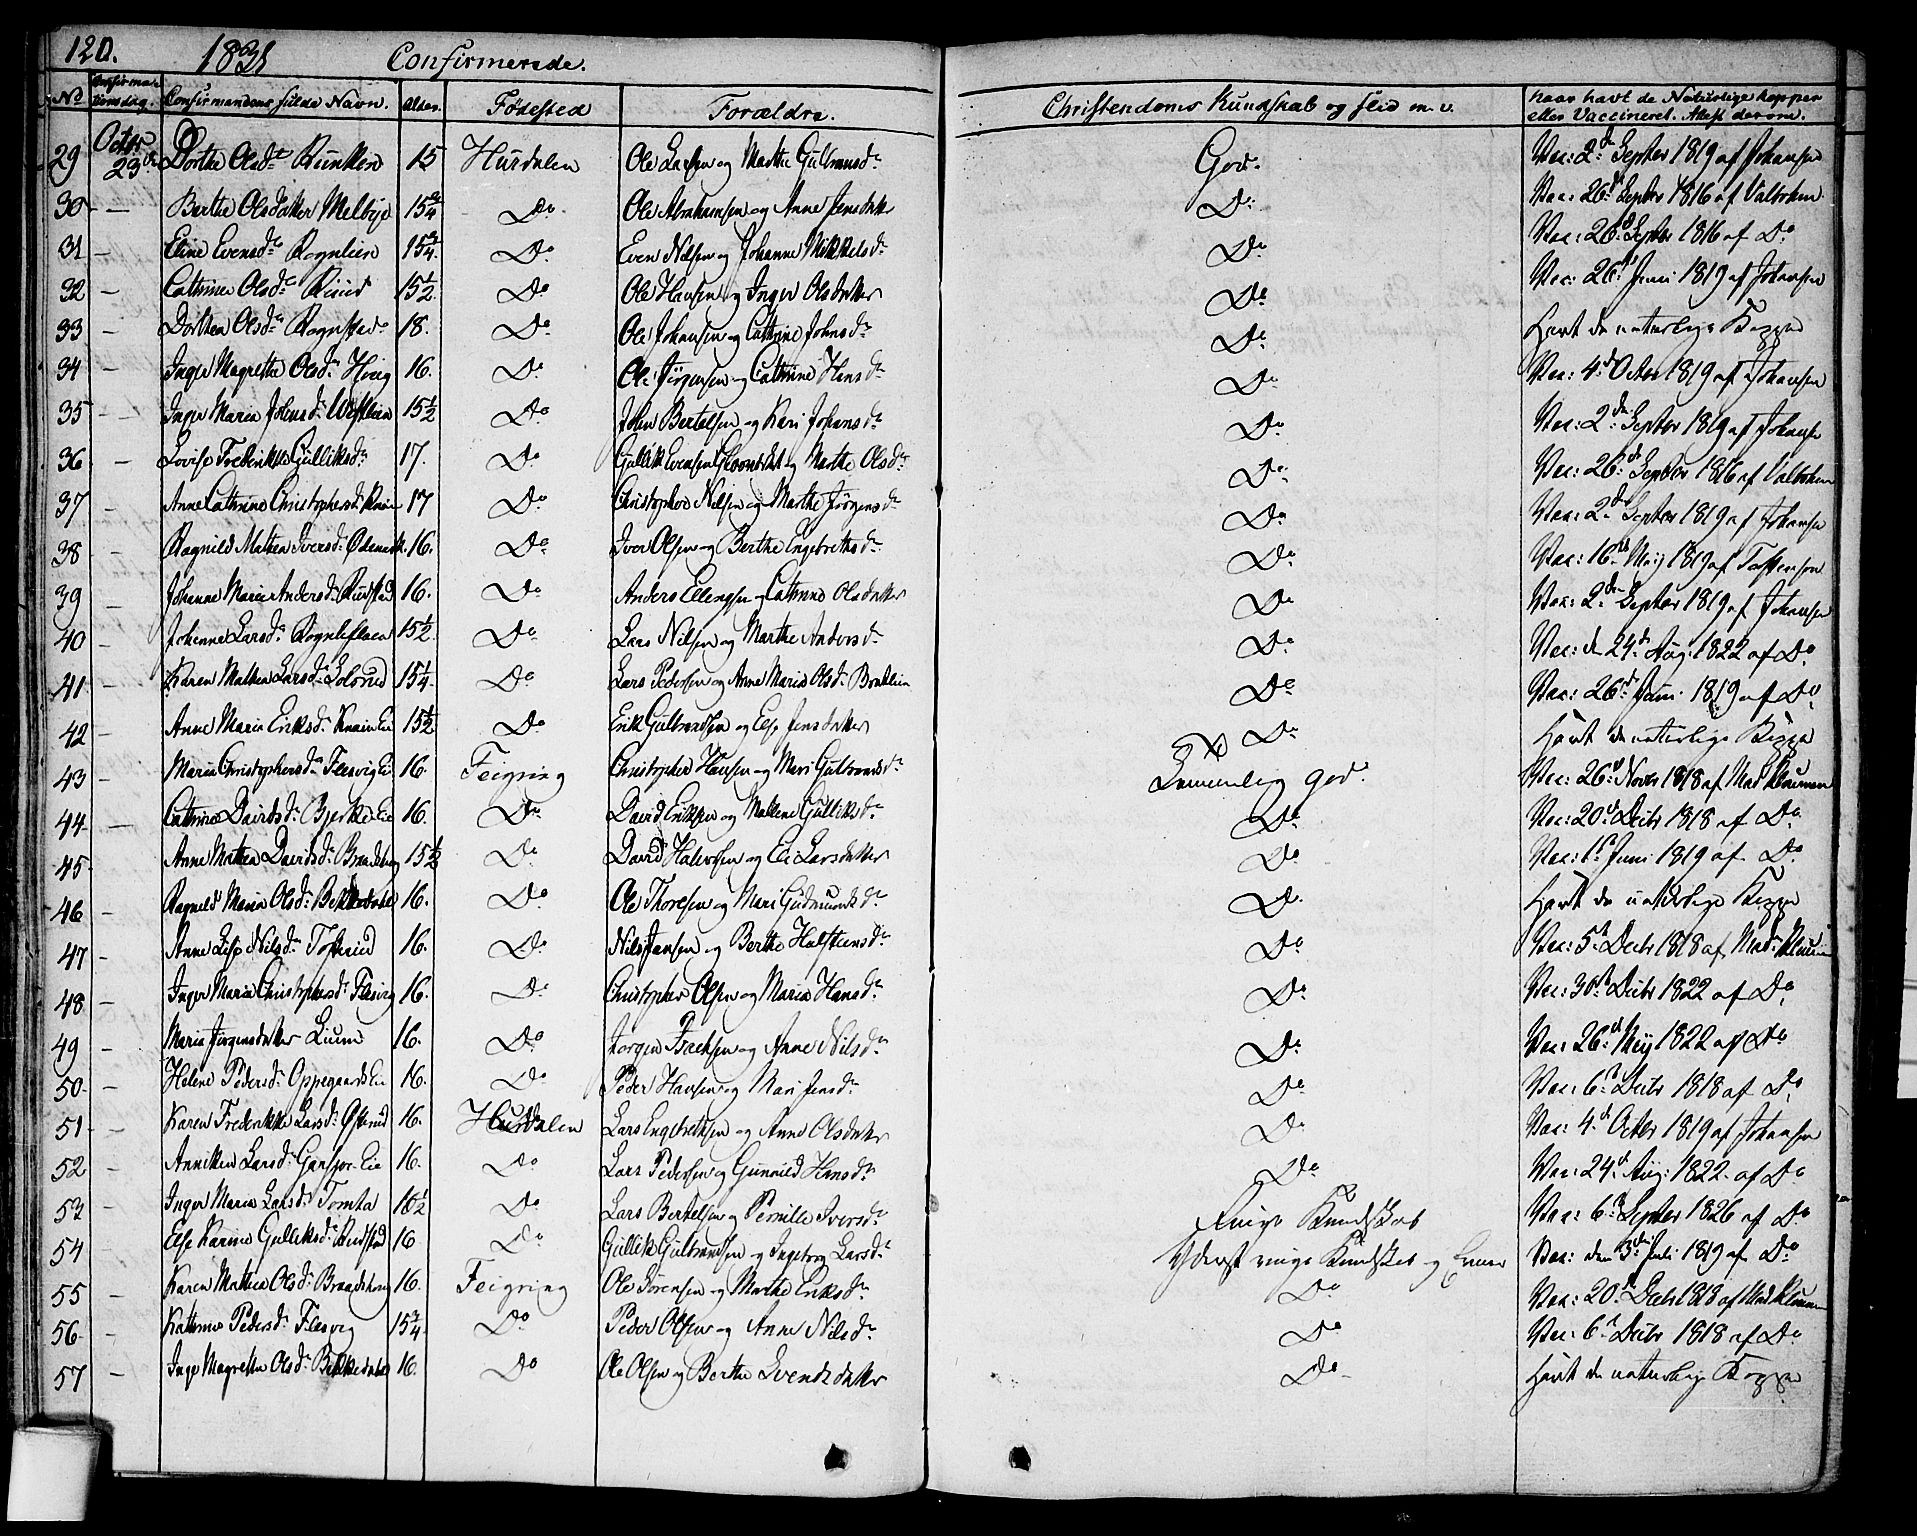 120. 1831 Confirmerede.
No Confirma-tionsdag. Confirmandens fulde Navn. Alder. Fødested Forældre. Christendoms Kundskab og flid m. v. haar havt de Naturlige kopper eller Vaccineret. Attest derom.
29 Octbr 23de Dorthe Olsdr 15 Hurdalen Ole Larsen og Marthe Gulbransdr God. Vac: 2den Septbr 1819 af Johansen
30 — Berthe Olsdatter Melbye 15¾ Do Ole Abrahamsen og Anne Jensdatter Do Vac: 26d Septbr 1816 af
31 — Eline Evensdr Rognlien 15¾ Do Even Nilsen og Johanne Mikkelsdr Do Vac: 26d Septbr 1816 af Do
32 — Cathrine Olsdr Ruud 15½ Do Ole Hansen og Inger Olsdatter Do Vac: 26d Juni 1819 af Johansen
33 — Dorthea Olsdr Rognstad 18. Do Ole Johansen og Cathrine Johnsdr Do Havt de naturlige Kopper
34 — Inger Magrethe Olsdr 16. Do Ole Jörgensen og Cathrine Hansdr Do Vac: 4d Octbr 1819 af Johansen
35 — Inger Maria Johnsdr 15½ Do John Bertelsen og Kari Johansdr Do Vac: 2den Septbr 1819 af Johansen
36 — Lovise Frederikke Gulliksdr 17. Do Gullik Evensen og Marthe Olsdr Do Vac: 26d Septbr 1816 af
37 — Anne Cathrine Christophersdr 17 Do Christopher Nilsen og Marthe Jörgensdr Do Vac: 2den Septbr 1819 af Johansen
38 — Ragnild Mathea Iversdr 16. Do Iver Olsen og Berthe Engebrethsdr Do Vac: 16d Mey 1819 af
39 — Johanne Marie Andersdr Rustad 16. Do Anders Ellingsen og Cathrine Olsdatter Do Vac: 2den Septbr 1819 af Johansen
40 — Johanne Larsdr 15½ Do Lars Nilsen og Marthe Andersdr Do Vac: d 24d Aug: 1822 af Do
41 — Karen Mathea Larsdr 15¼ Do Lars Pedersen og Anne Maria Olsdr Do Vac: 26d Juni 1819 af Do
42 — Anne Maria Eriksdr 15½ Do Erik Gulbrandsen og Else Jensdatter Do Havt de naturlige Kopper
43 — Maria Christophersdr Flesvig Eie 16. Feigring Christopher Hansen og Mari Gulbrandsdr Temmelig god. Vac: 26d Novbr 1818 af Mad Klauman
44 — Cathrine Davidsdr Bjerke Eie 16. Do David Eriksen og Mallene Gulliksdr Do Vac: 20d Decbr 1818 af Do
45 — Anne Mathea Davidsdr 15½ Do David Halvorsen og Eli Larsdatter Do Vac: 1ste Juni 1819 af Do
46 — Ragnild Maria Olsdr 16. Do Ole Thoresen og Mari Gudmundsdr Do Havt de naturlige Kopper
47 — Anne Lise Nilsdr 16. Do Nils Jansen og Berthe Halstensdr Do Vac: 5te Decbr 1818 af Mad:
48 — Inger Maria Christophersdr Flesvig 16. Do Christopher Olsen og Maria Hansdr Do Vac: 30te Decbr 1822 af Do
49 — Maria Jörgensdatter Lium 16. Do Jörgen og Anne Nilsdr Do Vac: 26d Mey 1822 af Do
50 — Helene Pedersdr Oppegaards Eie 16. Do Peder Hansen og Mari Jensdr Do Vac: 6te Decbr 1818 af Do
51 — Karen Frederikke Larsdr 16. Hurdalen Lars Engebrethsen og Anne Olsdatter Do Vac: 4d Octbr 1819 af Johansen
52 — Anniken Larsdr Garsjöe Eie 16. Do Lars Pedersen og Gunnild Hansdr Do Vac: 24d Aug: 1822 af Do
53 — Inger Maria Larsdr Tomta Do Lars Bertelsen og Pernille Iversdr Ringe Kundskab Vac: 6te Septbr 1826 af Do
54 — Else Karine Gulliksdr Rustad 16 Do Gullik Gulbrandsen og Ingeborg Larsdr Yderst ringe Kundskab og Evner Vac: den 3die Juli 1819 af Do
55 — Karen Mathea Olsdr 16. Feigring Ole Sörensen og Marthe Eriksdr Do Vac: 20d Decbr 1818 af Mad Klauman
56 — Kathrine Pedersdr Flesvig 15¾ Do Peder Olsen og Anne Nilsdr Do Vac: 6te Decbr 1818 af Do
57 — Inger Magrethe Olsdr 16. Do Ole Olsen og Berthe Svendsdatter Do Havt de naturlige Kopper